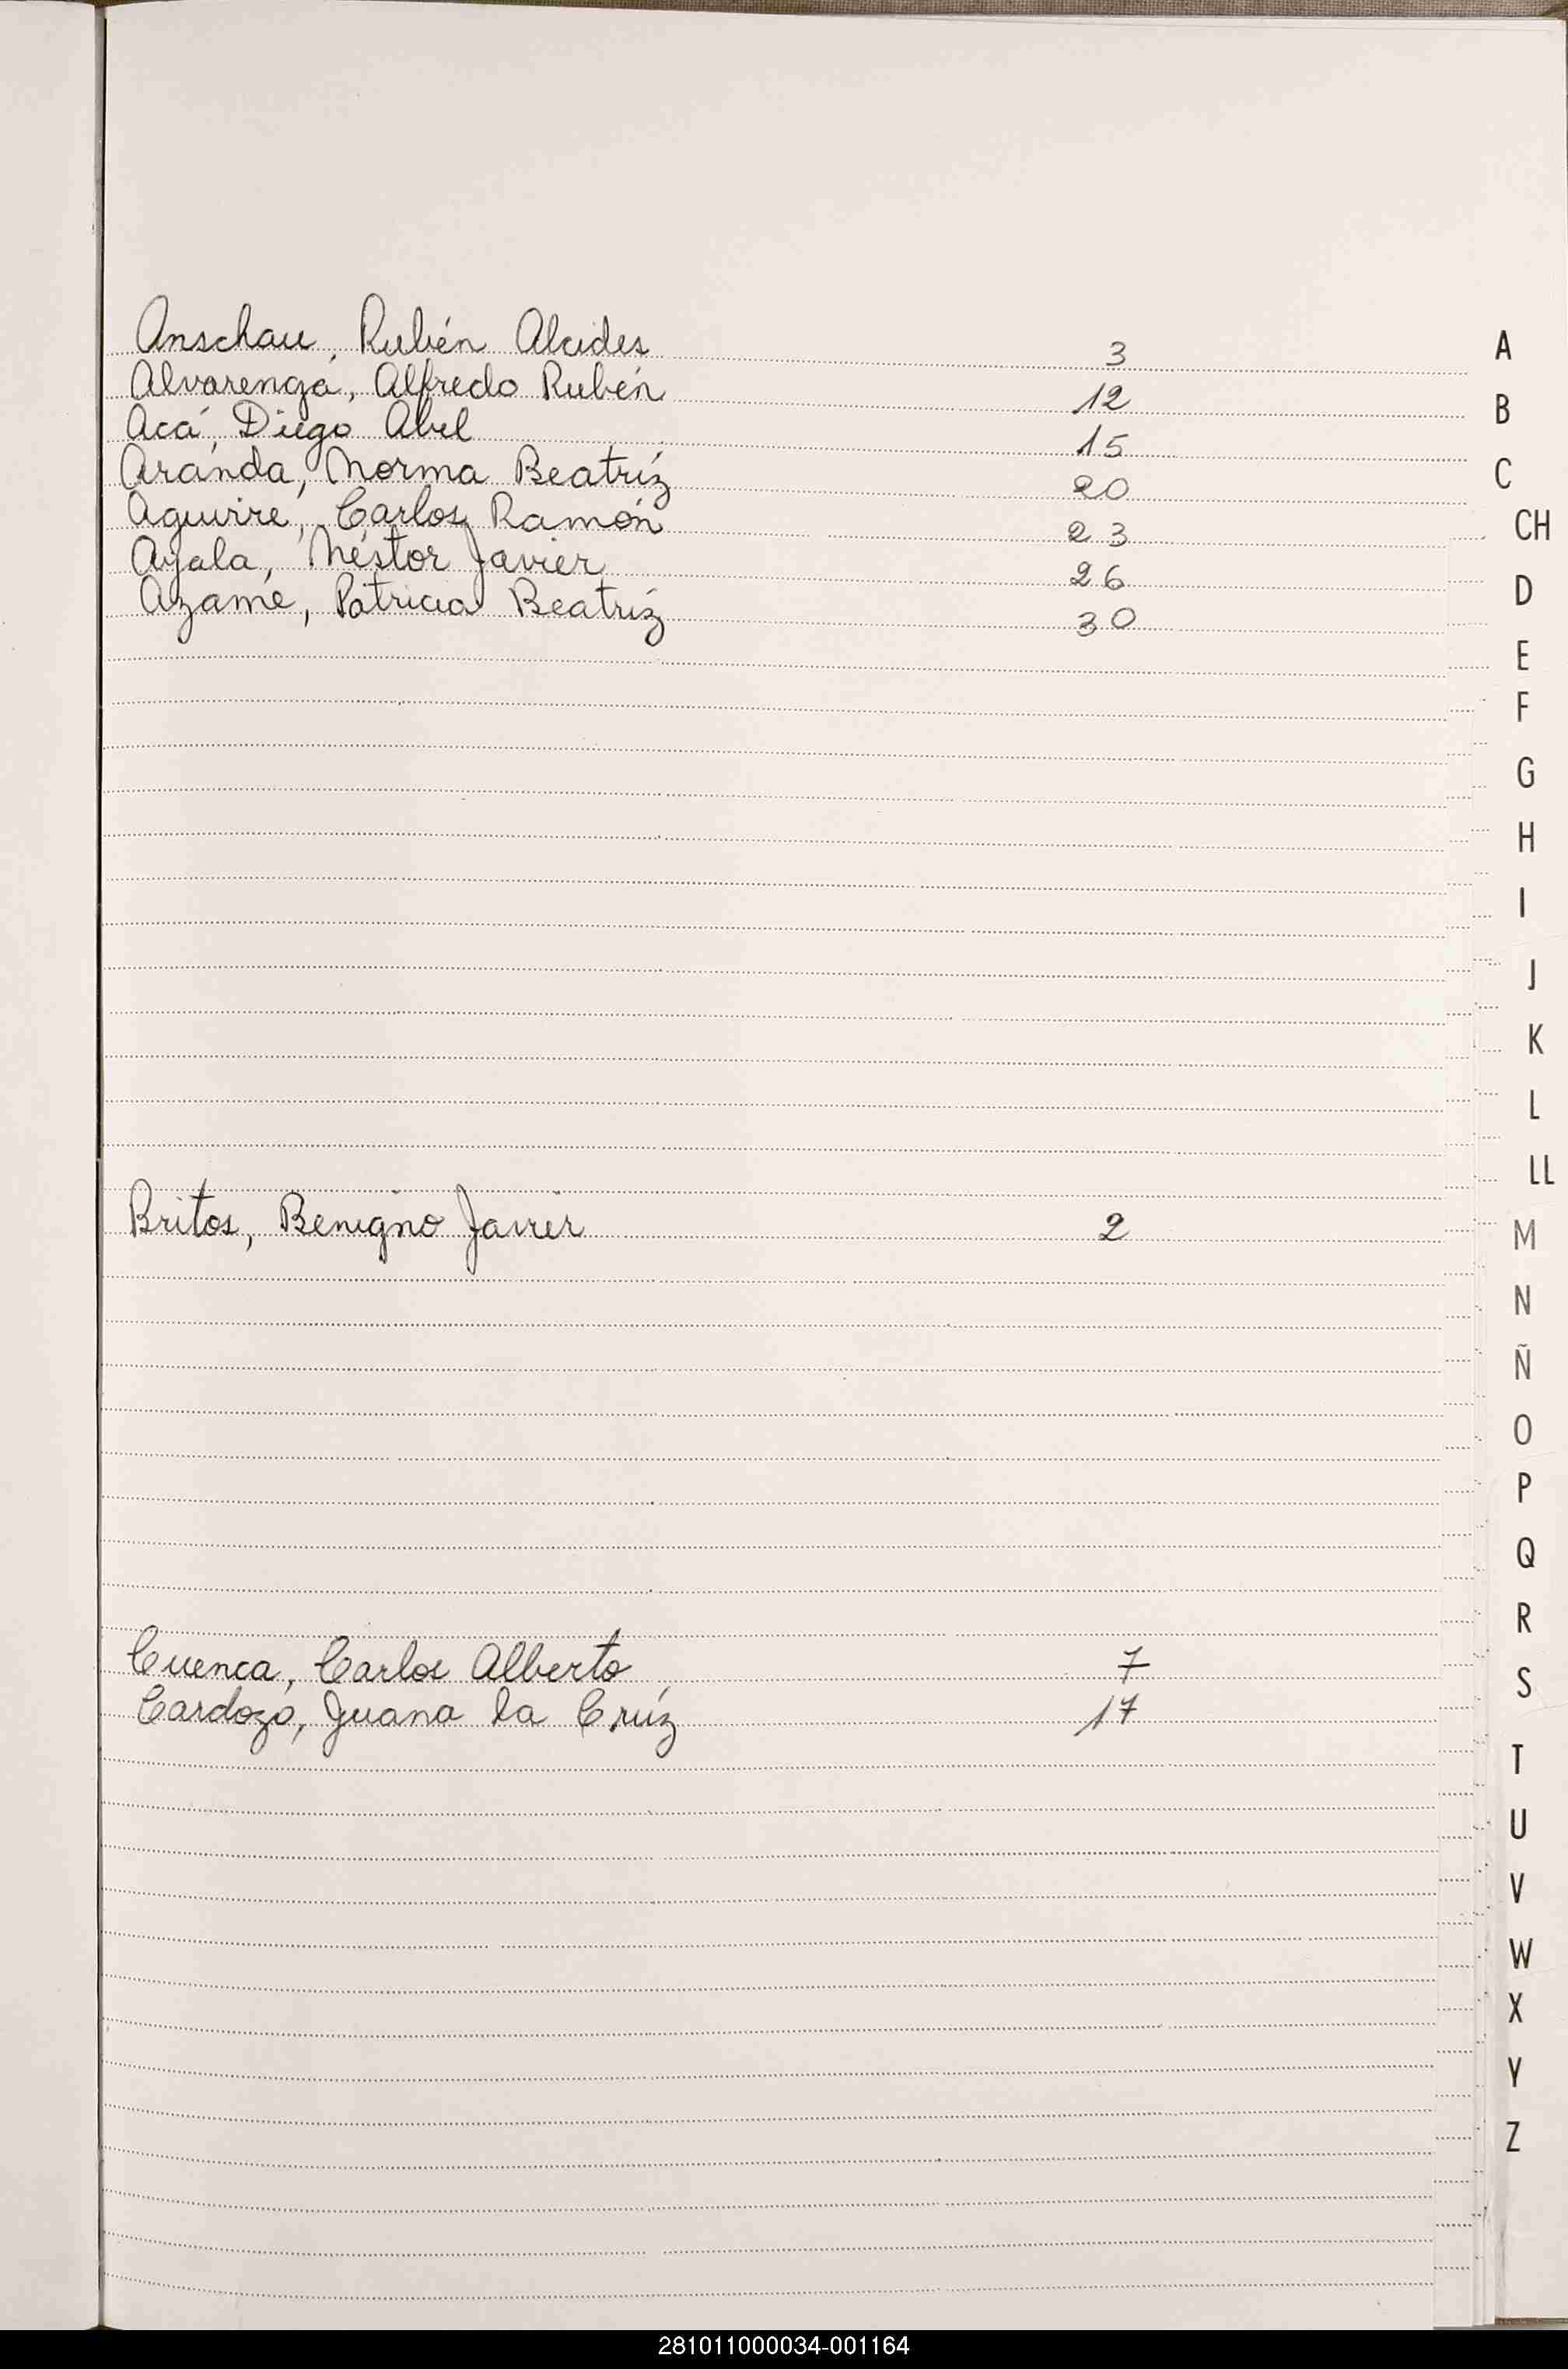 Anschau, Rubén Alcides 3
Alvarenga, Alfredo Rubén 12
Acá, Diego Abel 15
Aranda, Norma Beatríz 20
Aguirre, Carlos Ramón 23
Ayala, Néstor Javier 26
Azame, Patricia Beatríz 30
Britos, Benigno Javier 2
Cuenca, Carlos Alberto 7
Cardozo, Juana la Crúz 17
A
B
C
CH
D
E
F
G
H
I
J
K
L
LL
M
N
Ñ
O
P
Q
R
S
T
U
V
W
X
Y
Z
281011000034-001164